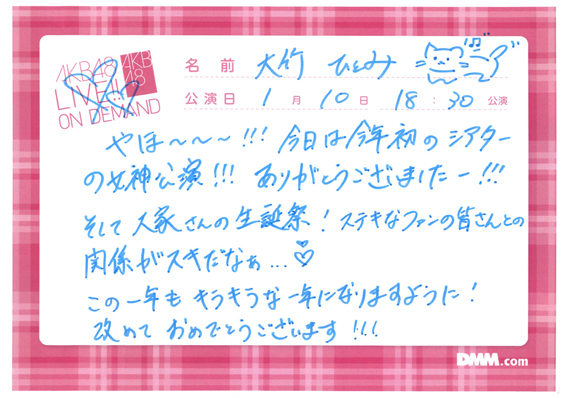 AKB48
LIVE!!
ON DEMAND
AKB
48
名前 大竹 ひとみ
公演日 1月10日 18:30公演
やほ〜〜〜!!! 今日は今年初のシアター
の女神公演!!! ありがとうございましたー!!!
そして大家さんの生誕祭!ステキなファンの皆さんとの
関係がスキだなぁ...♡
この一年もキラキラな一年になりますように!
改めておめでとうございます!!!
DMM.com